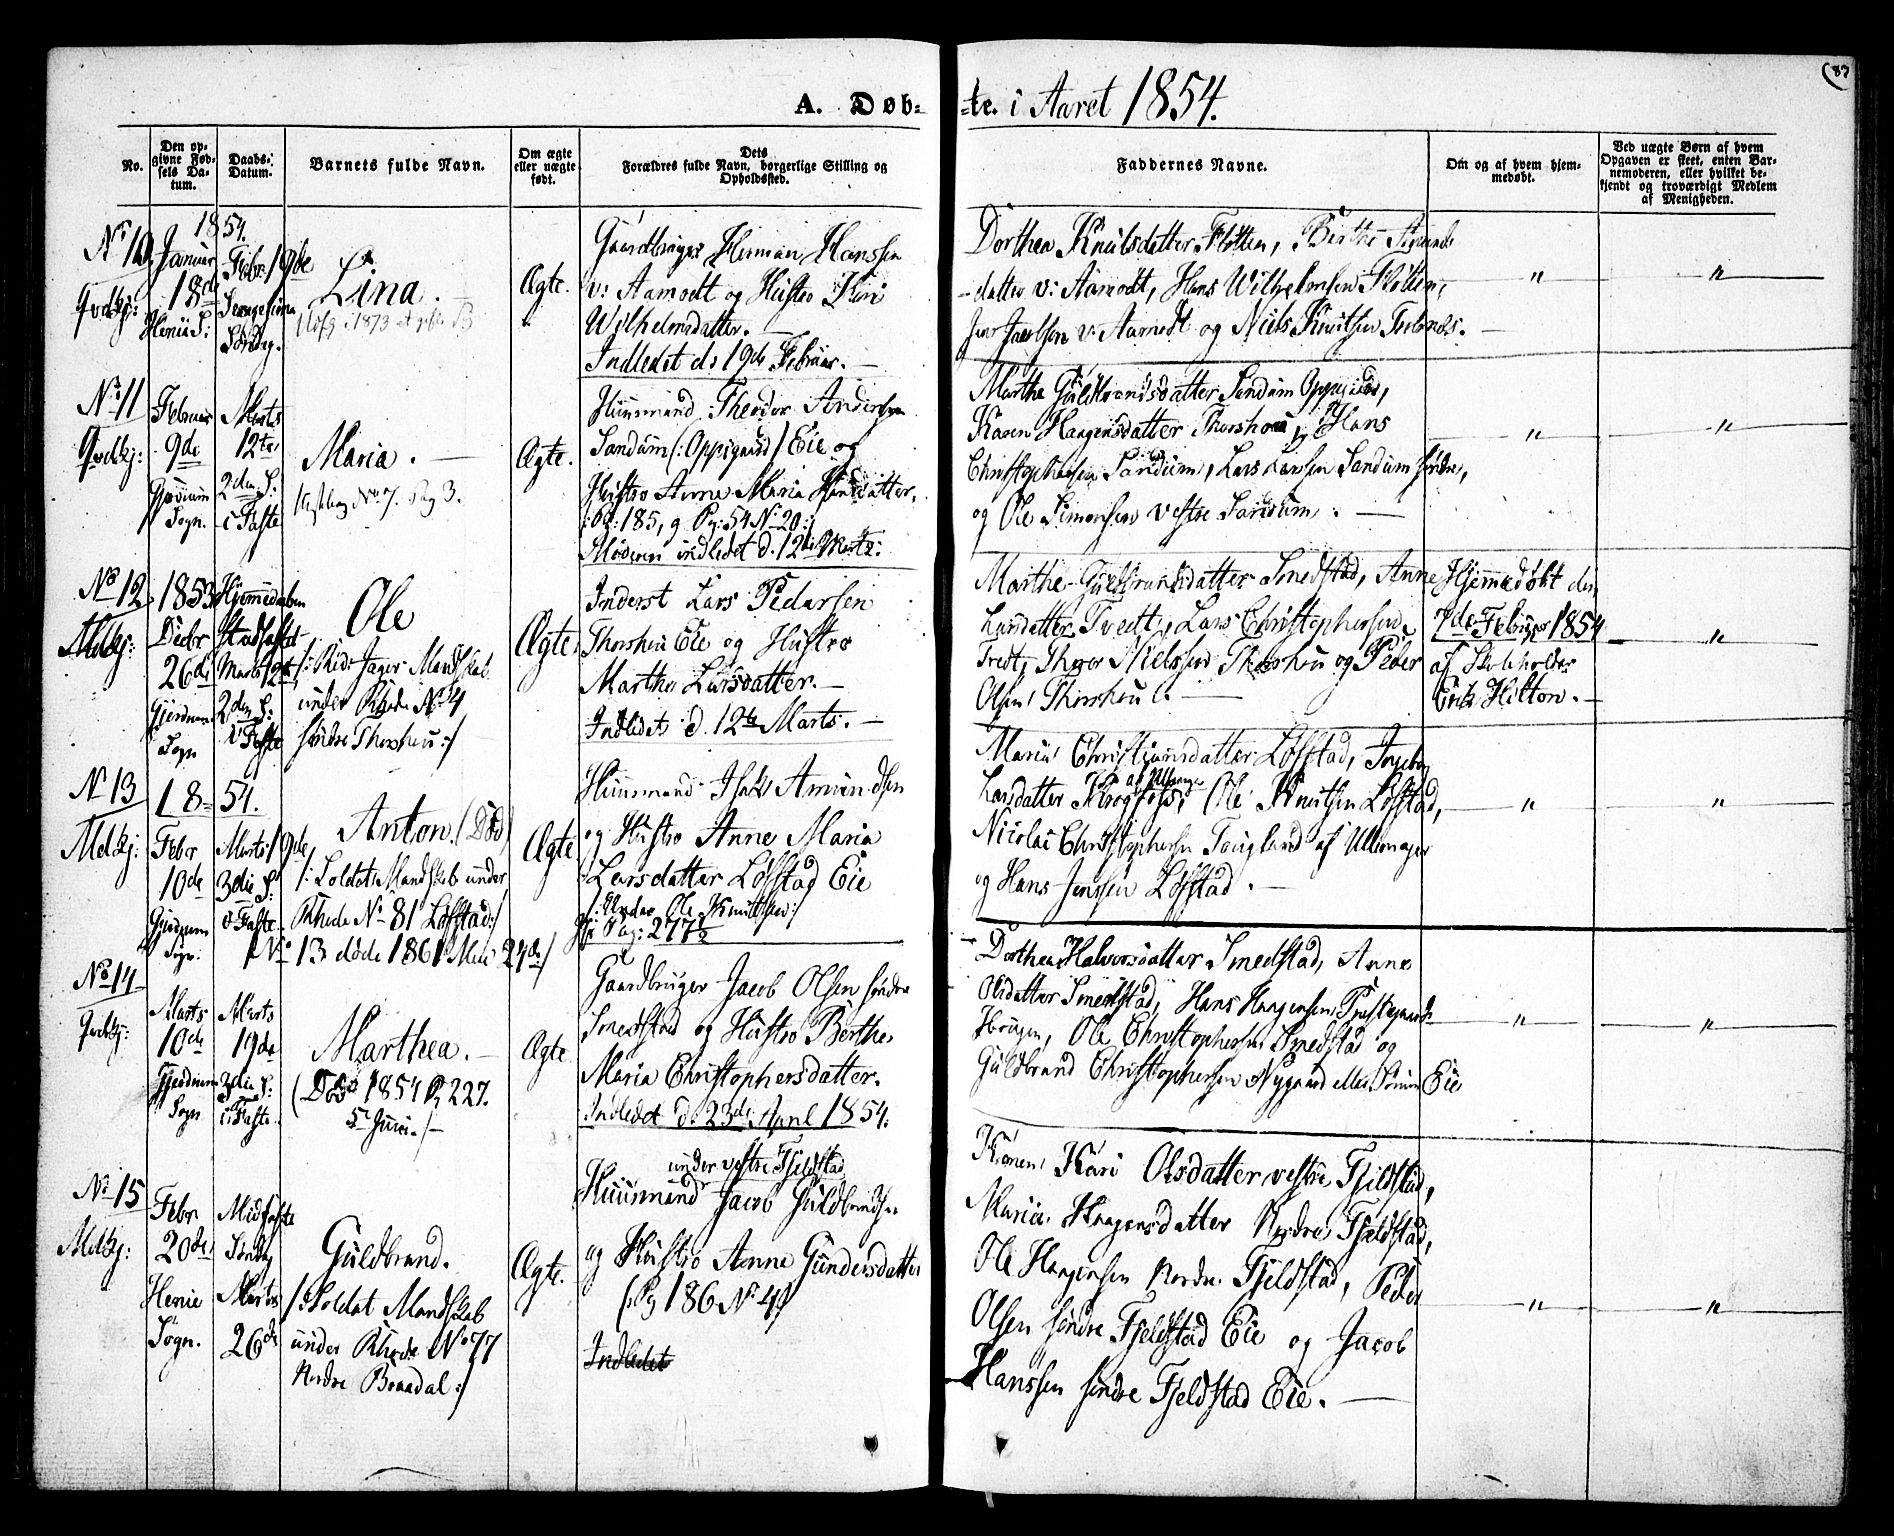 (87
A. Døb-
-te. i Aaret 1854.
No.
Den opgivne Fødsels Datum.
Daabs-Datum.
Barnets fulde Navn.
Om ægte eller uægte født.
Dets Forældres fulde Navn, borgerlige Stilling og Opholdssted.
Faddernes Navne.
Om og af hvem hjemmedøbt.
Ved uægte Børn af hvem Opgaven er skeet, enten Barnemoderen, eller hvilket bekjendt og troværdigt Medlem af Menigheden.
1854.
No 10
Qvdkj:
Januar
18de
Februar 19de
Søndag.
Lina.
Ægte.
Gaardbruger Herman Hanssen
v: Aamodt og Hustro Kari
Wilhelmsdatter.
Indledet d: 19de Februar.
Dorthea Knudsdatter Flotten, Berthe
datter v: Aamodt, Hans Wilhelmsen Flotten,
v: Aamodt og Niels Knutsen
"
"
No 11
Qvdkj:
Februar
9de
Gjerdrum
Sogn.
Marts
12te
2den S:
i Faste
Maria.
No 7. Pag 3.
Ægte.
Huusmand Theodor Andersen
Sandum (: Oppigaard) Eie og
Hustro Anne Maria Hansdatter.
:Pg: 185, g Pg: 54 No 20:
Moderen indledet d. 12te Marts:
Marthe Guldbrandsdatter Sandum Oppigard,
Karen Haagensdatter Thorshou, Hans
Christophersen Sandum, Lars Larsen Sandum søndre,
og Ole Simensen vestre Sandum.
"
"
No 12
Mdkj:
1853
Decbr
26de
Gjerdrum
Sogn
Hjemmedaaben
Stadfæstet
Marts 12te
2den S:
i Faste
Ole
/: Ride Jæger Mandskab
under Rhode No 4
søndre Thorshou :/
Ægte.
Inderst Lars Pedersen
Thorshou Eie og Hustro
Marthe Larsdatter.
Indledet d. 12te Marts.
Marthe Guldbrandsdatter Smedstad, Anne
Larsdatter Tvedt, Lars Christophersen
Tvedt, Thor Nielssen Thorshou og Peder
Olsen Thorshou.
Hjemmedøbt den
7de Februar 1854
af Skoleholder
Erik Holton.
"
No 13
Mdkj:
1854.
Febr
10de
Gjerdrum
Sogn.
Marts 19de
3die S:
i Faste.
Anton. (Død)
/: Soldat Mandskab under
Rhode No 81 Løfstad :/
/No 13 døde 1861 Mai 24de/
Ægte
Huusmand Isak Amundsen
og Hustro Anne Maria
Larsdatter Løfstad Eie
/: Under Ole Knutsen :/
Pag: 277
Maria Christiansdatter Løfstad, Ingeborg
Larsdatter Krogfoss, af Ullensager Ole Knutsen Løfstad,
Nicolai Christophersen Tangland af Ullensager
og Hans Jenssen Løfstad.
"
"
No 14
Qvdkj:
Marts
10de
Gjerdrum
Sogn
Marts
19de
3die S:
i Faste.
Marthea.
(Død 1854 Pg 227.
5te Juni. /
Ægte
Gaardbruger Jacob Olsen søndre
Smedstad og Hustro Berthe
Maria Christophersdatter.
Indledet d. 23de April 1854.
Dorthea Halvorsdatter Smedstad, Anne
Olsdatter Smedstad, Hans Haagensen Præstegaards-
Ole Christophersen Smedstad og
Guldbrand Christophersen Nygaard eller Eie
"
"
No 15
Mdkj:
Febr
20de
Sogn.
Midfaste
Søndag
Marts
26de
Guldbrand.
/: Soldat Mandskab
under Rhode No 77
Nordre Braadal :/
Ægte.
under vestre Fjeldstad
Huusmand Jacob Guldbrandsen
og Hustro Anne Gundersdatter
(Pg 186 No 4)
Indledet
Konen Kari Olsdatter vestre Fjeldstad,
Maria Haagensdatter Nordre Fjeldstad,
Ole Haagensen Nordre Fjeldstad, Peder
Olsen søndre Fjeldstad Eie og Jacob
Hanssen søndre Fjeldstad Eie.
"
"